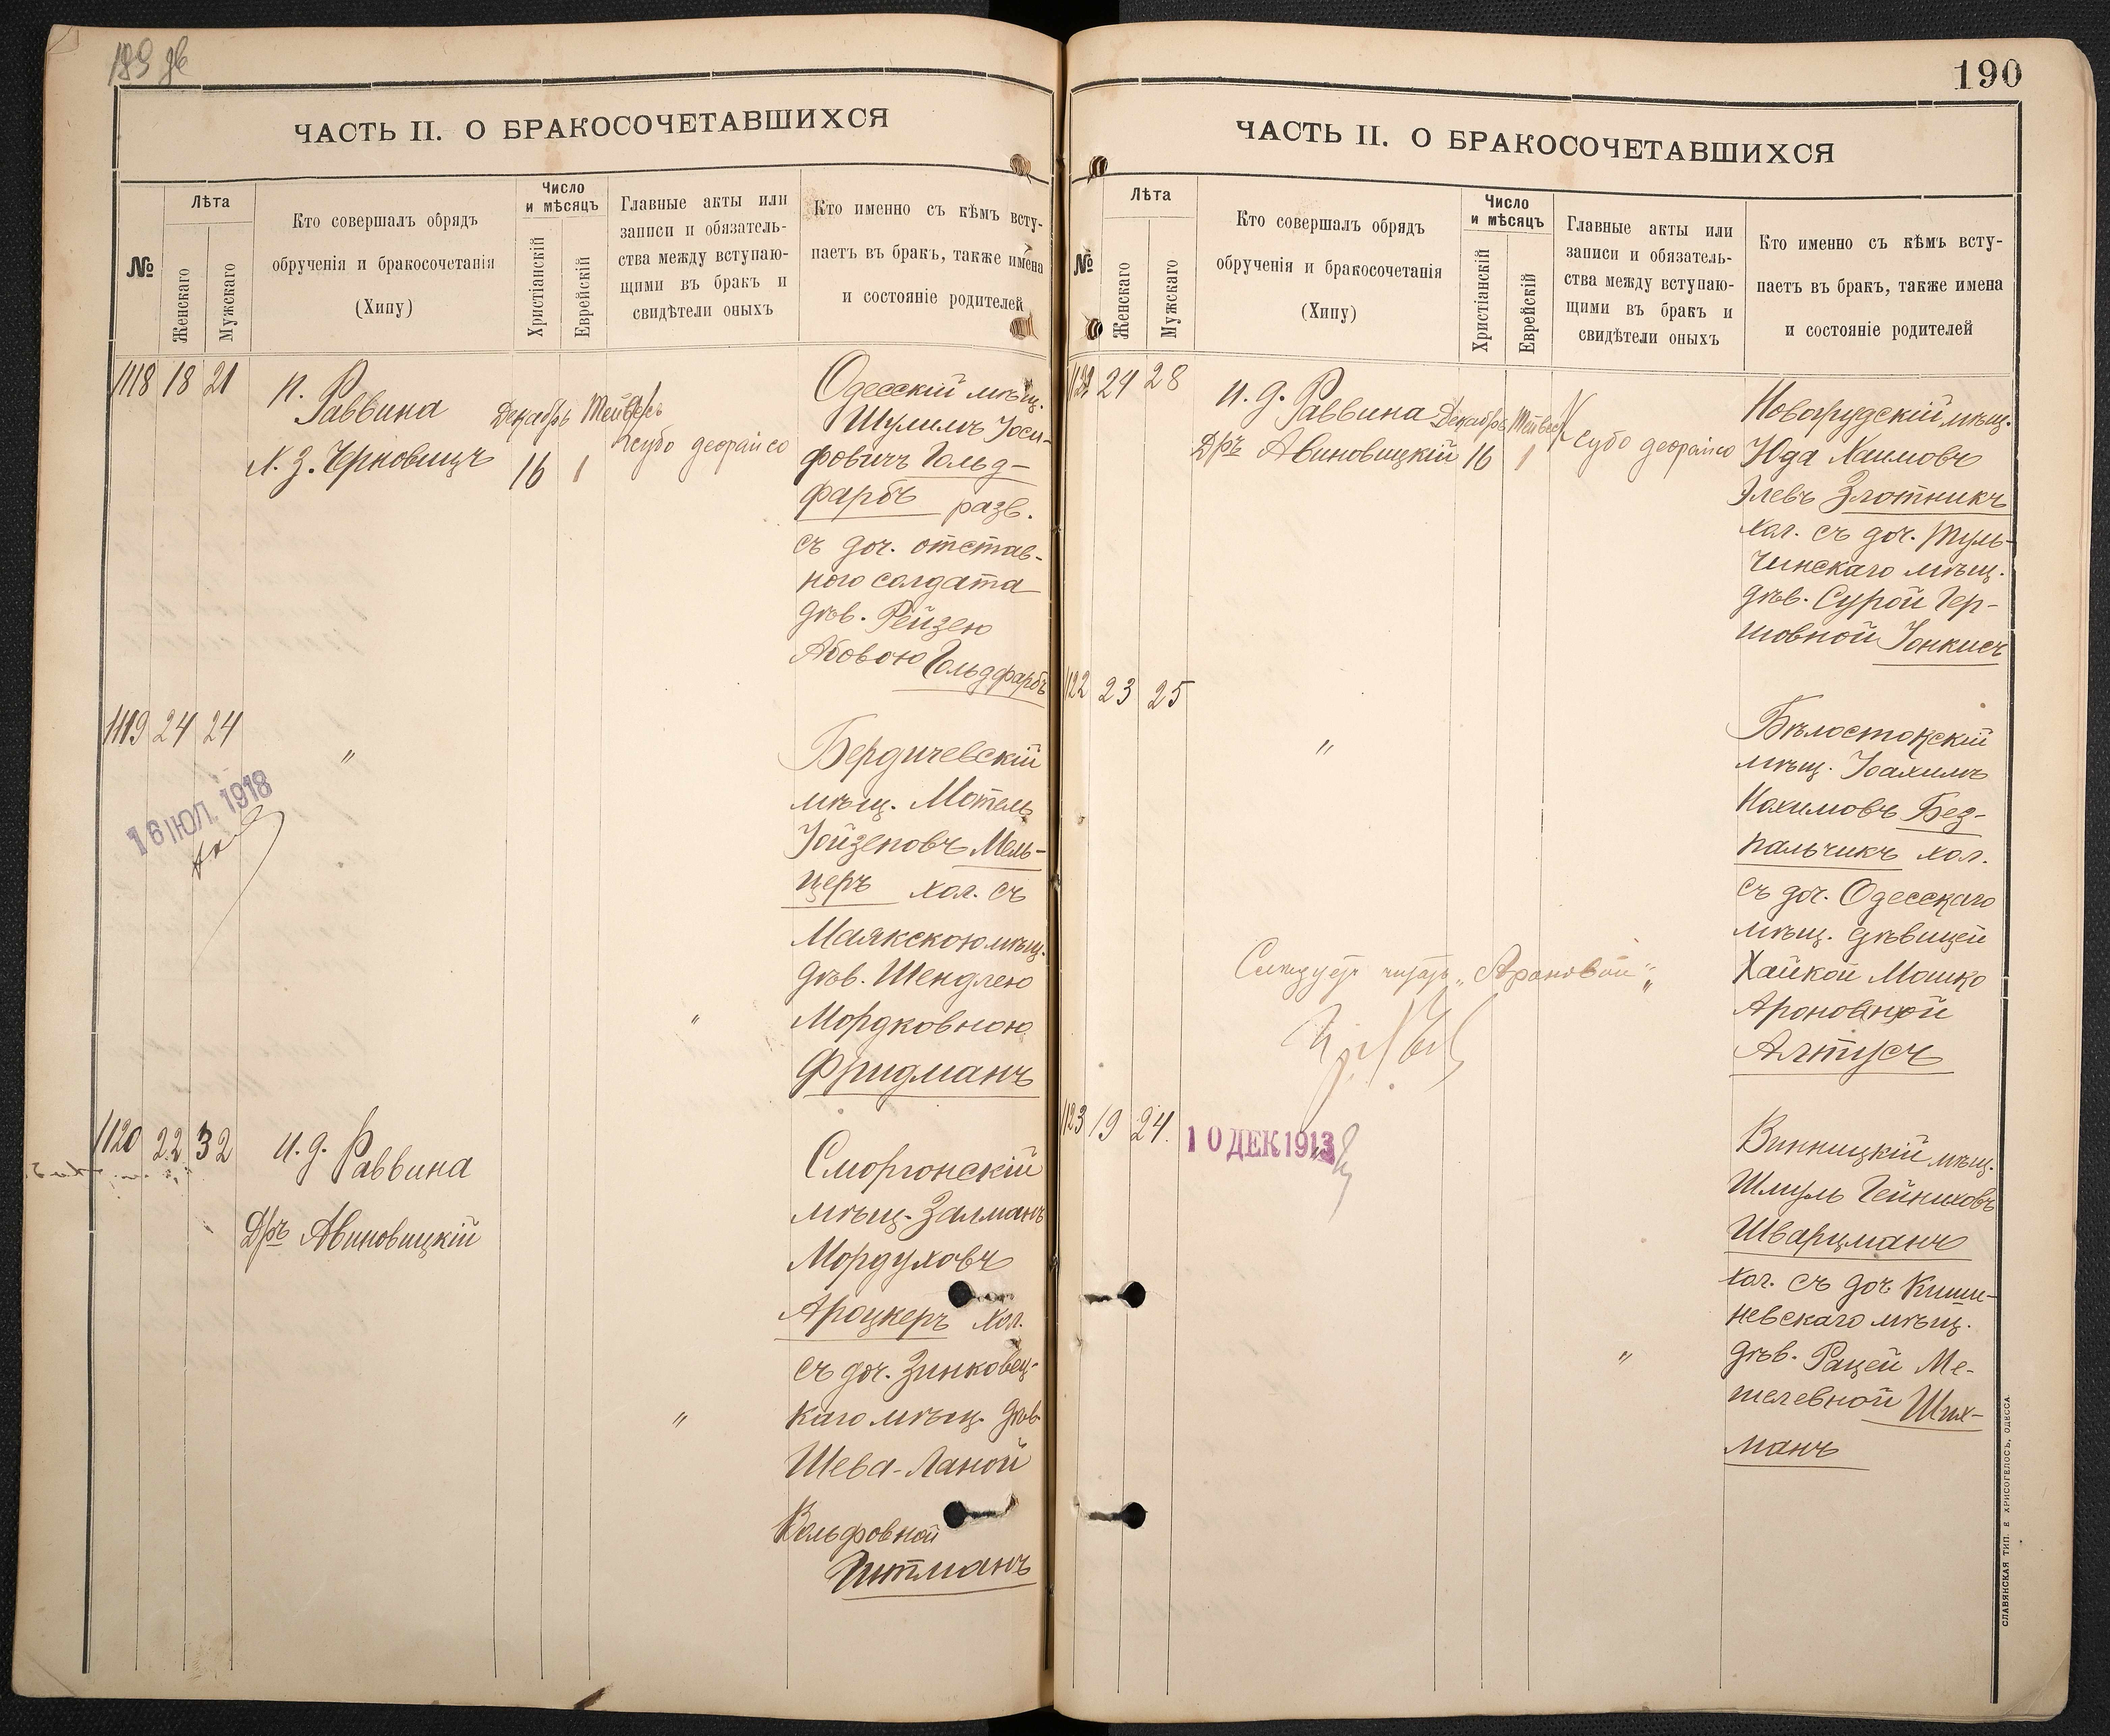 189 дв
ЧАСТЬ II. О БРАКОСОЧЕТАВШИХСЯ
№
Лѣта
Женскаго
Мужскаго
Кто совершалъ обрядъ
обрученія и бракосочетанія
(Хипу)
Число
и мѣсяцъ
Христіанскій
Еврейскій
Главные акты или
записи и обязатель-
ства между вступаю-
щими въ бракъ и
свидѣтели оныхъ
Кто именно съ кѣмъ всту-
паетъ въ бракъ, также имена
и состояніе родителей
1118 18 21
П.
Раввина
Х. З. Черновицъ
Декабрь
16
Тейвесъ
1
Ксубо деорайсо
Одесскій мѣщ.
Шулимъ Іоси-
фовичъ Гольд-
фарбъ разв.
съ доч. отстав-
ного солдата
дѣв. Рейзею
Абовою Гольдфарбъ
1119 24 24
"
16 ІЮЛ. 1918
"
Бердичевскій
мѣщ. Мотель
Іойзеповъ Мель-
церъ хол. съ
Маякскою мѣщ.
дѣв. Шендлею
Мордковною
Фридманъ
1120 22 32
И. д. Раввина
Д-ръ Авиновицкій
"
Сморгонскій
мѣщ. Залманъ
Мордуховъ
Ароцкеръ хол.
съ доч. Зинковец-
каго мѣщ. дѣв.
Шева-Ханой
Вольфовной
Гитманъ
190
ЧАСТЬ II. О БРАКОСОЧЕТАВШИХСЯ
№
Лѣта
Женскаго
Мужскаго
Кто совершалъ обрядъ
обрученія и бракосочетанія
(Хипу)
Число
и мѣсяцъ
Христіанскій
Еврейскій
Главные акты или
записи и обязатель-
ства между вступаю-
щими въ бракъ и
свидѣтели оныхъ
Кто именно съ кѣмъ всту-
паетъ въ бракъ, также имена
и состояніе родителей
1121 24 28
И. д. Раввина
Д-ръ Авиновицкій
Декабрь
16
Тейвесъ
1
Ксубо деорайсо
Новогрудскій мѣщ.
Юда Хаимовъ
Элевъ Злотникъ
хол. съ доч. Туль-
чинскаго мѣщ.
дѣв. Сурой Гер-
шовной Іонкисъ
1122 23 25
"
Слѣдуетъ читать „Ароновой"
Бѣлостокскій
мѣщ. Іоахимъ
Нахимовъ Без-
пальчикъ хол.
съ доч. Одесскаго
мѣщ. дѣвицей
Хайкой Мошко
Ароновной
Алтусъ
1123 19 24
10 ДЕК 1913
"
Винницкій мѣщ.
Шмуль Гейниховъ
Шварцманъ
хол. съ доч Киши-
невскаго мѣщ.
дѣв. Рацей Ме-
шелевной Ших-
манъ
СЛАВЯНСКАЯ ТИП. Е ХРИСОГЕЛОСЪ, ОДЕССА.